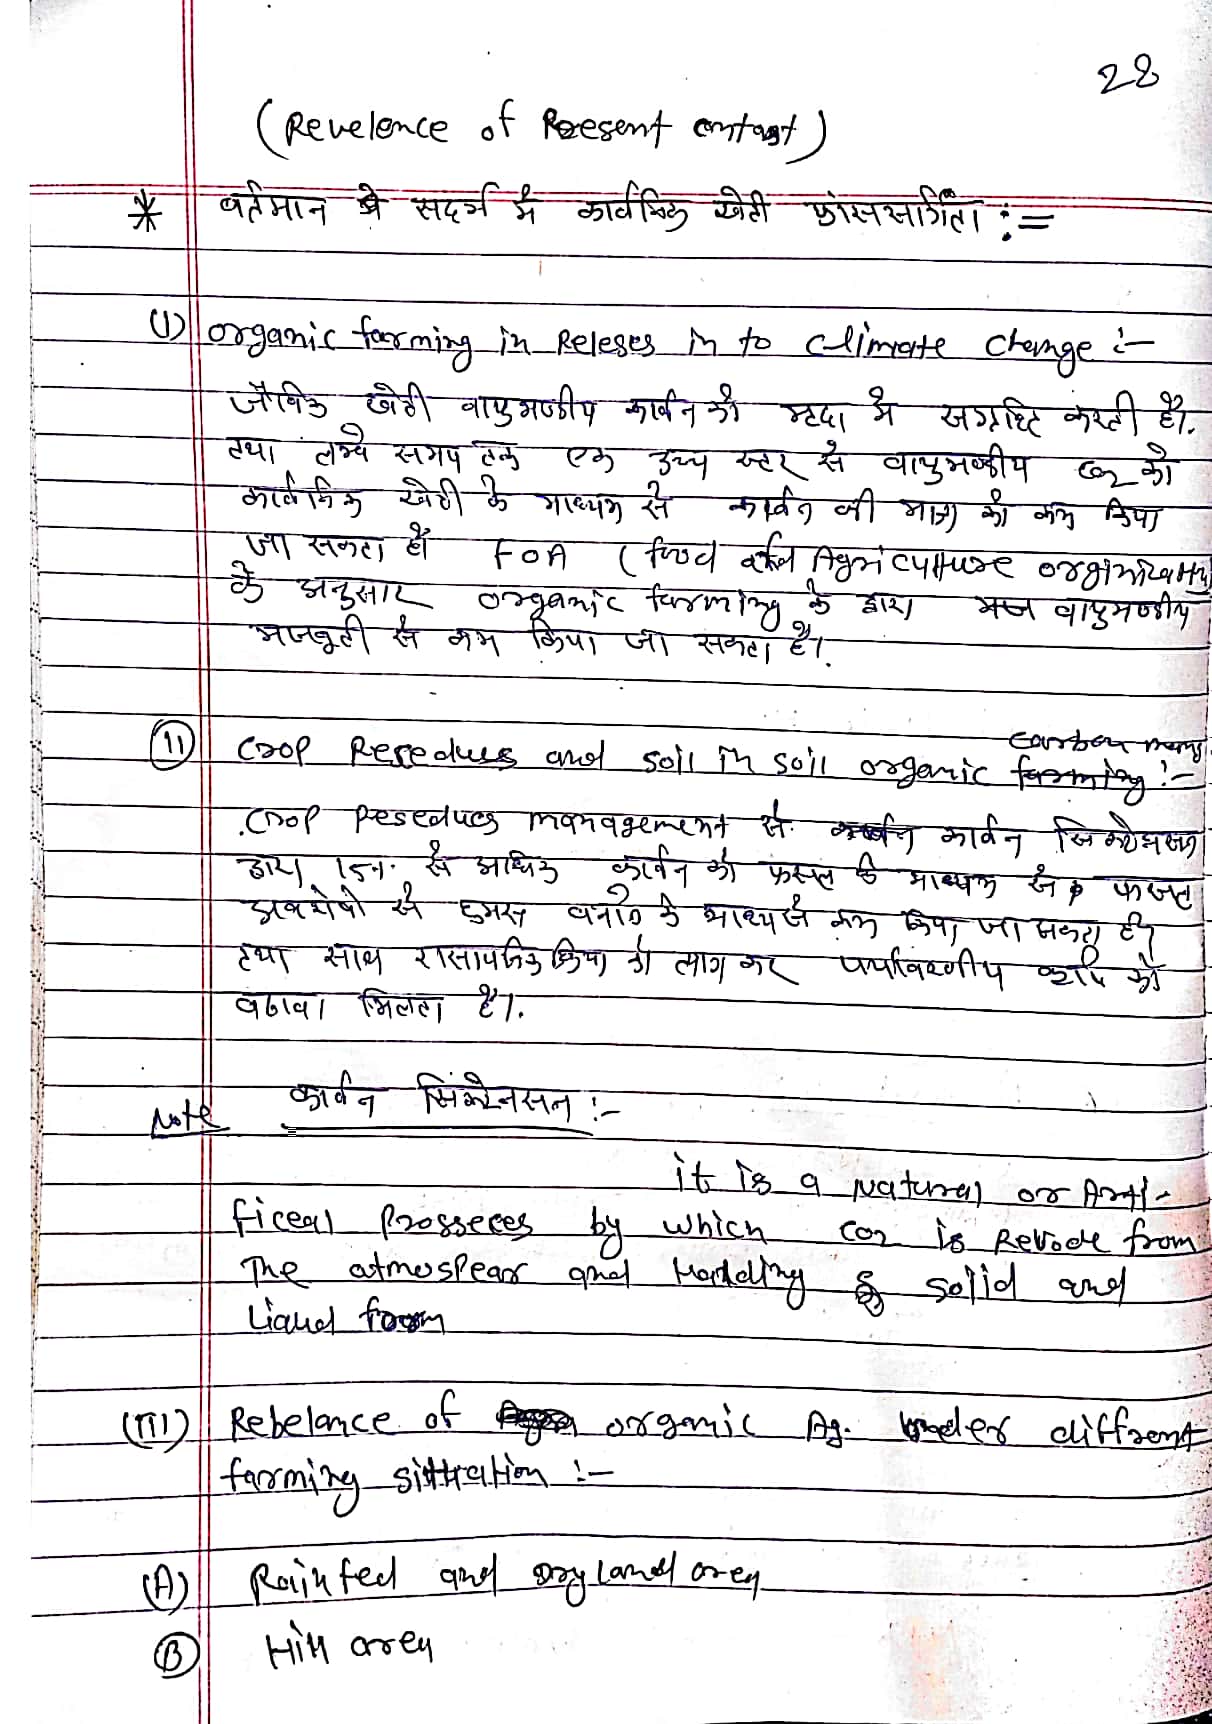 28
(Revelence of Present contast)
* वर्तमान के सदर्भ में कार्वनिक खेती प्रांससगिता :=
(I) organic farming in Releses in to climate change :-
जैविक खेती वायुमण्डीय कार्वन को म्रदा में सग्रहित करती है।
तथा लम्वे समय तक एक उच्च स्टर से वायुमण्डीय co2 को
कार्वनिक खेती के माध्यम से कार्वन की मात्रा को कम किया
जा सकता हैं FOA (food and Agriculture orginization)
के अनुसार organic farming के द्वारा वायुमण्डीय
मजबूती से कम किया जा सकता है।
(11) Crop Reseduces and soil in soil organic farming :-
carbon
Crop Reseduces management से कार्वन
द्वारा 15%. से अधिक कार्वन को फसल के माध्यम से फसल
अवशेषो से हुमस वनाने के माध्य से कम किया जा सकता है।
तथा साथ रासायनिक क्रिया को त्याग कर पर्यावरणीय को
वढावा मिलता है।
Note कार्वन सिक्वेनसन :-
it is a Natural or Arti-
ficeal Prosseces by which co2 is Revode from
The atmospear and Handding solid and
Liaud form
(III) Rebelance of organic Ag. under diffrent
farming sittration :-
(A) Rainfed and Dry land area
(B) Hill area